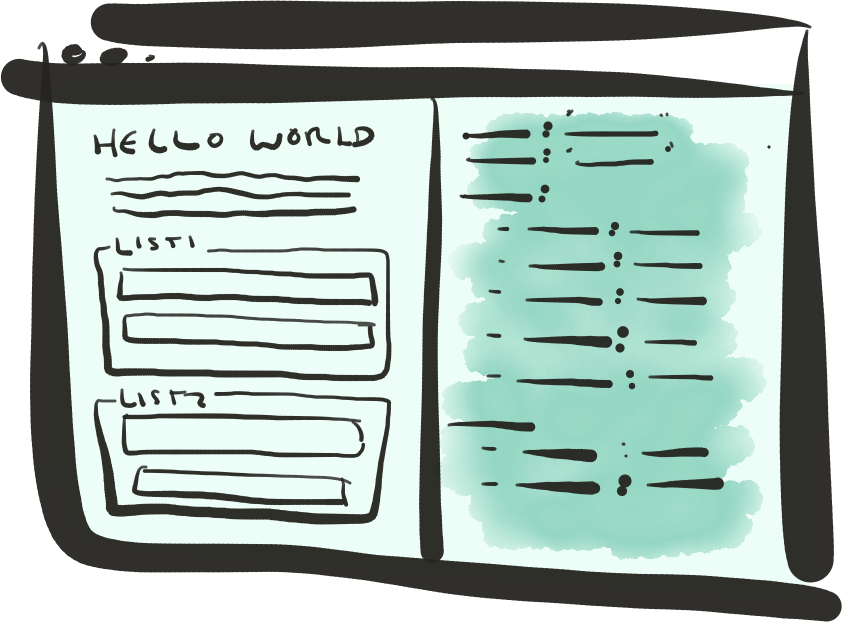 HELLO WORLD
LIST1
LIST2